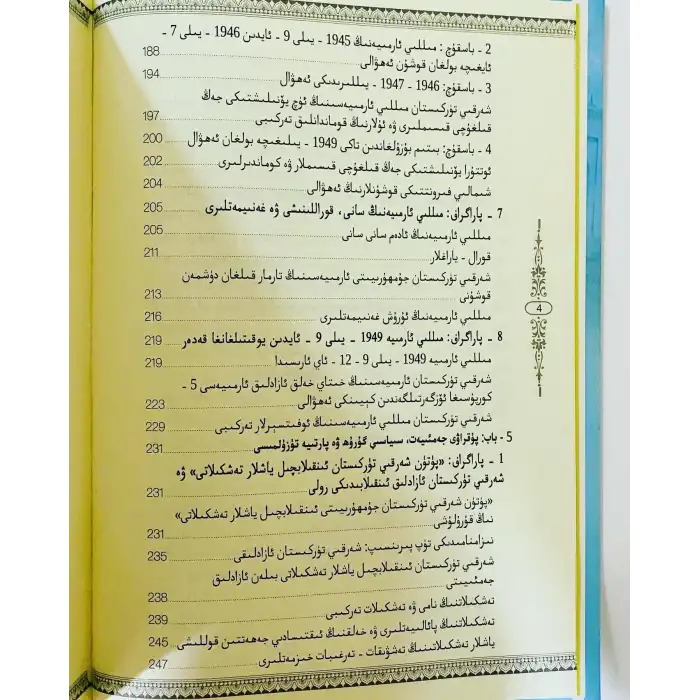 2 - باسقۇچ: مىللىي ئارمىيەنىڭ 1945 - يىلى 9 - ئايدىن 1946 - يىلى 7 -
ئايغىچە بولغان قوشۇن ئەھۋالى 188
3 - باسقۇچ: 1946 - 1947 - يىللىرىدىكى ئەھۋال 194
شەرقىي تۈركىستان مىللىي ئارمىيەسىنىڭ ئۈچ يۆنىلىشتىكى جەڭ
قىلغۇچى قىسىملىرى ۋە ئۇلارنىڭ قوماندانلىق تەركىبى 197
4 - باسقۇچ: بىتىم بۇزۇلغاندىن تاكى 1949 - يىلىغىچە بولغان ئەھۋال 200
ئوتتۇرا يۆنىلىشتىكى جەڭ قىلغۇچى قىسىملار ۋە كوماندىرلىرى 202
شىمالىي فىرونتتىكى قوشۇنلارنىڭ ئەھۋالى 204
7 - پاراگراف: مىللىي ئارمىيەنىڭ سانى، قوراللىنىشى ۋە غەنىيمەتلىرى 205
مىللىي ئارمىيەنىڭ ئادەم سانى سانى 205
قورال - ياراغلار 211
شەرقىي تۈركىستان جۇمھۇرىيىتى ئارمىيەسىنىڭ تارمار قىلغان دۈشمەن
قوشۇنى 213
مىللىي ئارمىيەنىڭ ئۇرۇش غەنىيمەتلىرى 216
8 - پاراگراف: مىللىي ئارمىيە 1949 - يىلى 9 - ئايدىن يوقىتىلغانغا قەدەر 219
مىللىي ئارمىيە 1949 - يىلى 9 - 12 - ئاي ئارىسىدا 219
شەرقىي تۈركىستان ئارمىيەسىنىڭ خىتاي خەلق ئازادلىق ئارمىيەسى 5 -
كورپۇسىغا ئۆزگەرتىلگەندىن كېيىنكى ئەھۋالى 223
شەرقىي تۈركىستان مىللىي ئارمىيەسىنىڭ ئوفىتسېرلار تەركىبى 229
5 - باب: پۇتراۋى جەمئىيەت، سىياسىي گۇرۇھ ۋە پارتىيە تۈزۈلمىسى 231
1 - پاراگراف: «پۈتۈن شەرقىي تۈركىستان ئىنقىلابچىل ياشلار تەشكىلاتى» ۋە
شەرقىي تۈركىستان ئازادلىق ئىنقىلابىدىكى رولى 231
«پۈتۈن شەرقىي تۈركىستان جۇمھۇرىيىتى ئىنقىلابچىل ياشلار تەشكىلاتى»
نىڭ قۇرۇلۇشى 231
نىزامنامىدىكى تۈپ پىرىنسىپ: شەرقىي تۈركىستان ئازادلىقى 235
شەرقىي تۈركىستان ئىنقىلابچىل ياشلار تەشكىلاتى بىلەن ئازادلىق
جەمئىيىتى 238
تەشكىلاتنىڭ نامى ۋە تەشكىلات تەركىبى 239
تەشكىلاتنىڭ پائالىيەتلىرى ۋە خەلقنىڭ ئىقتىسادىي جەھەتتىن قوللىشى 245
ياشلار تەشكىلاتىنىڭ تەشۋىقات - تەرغىبات خىزمەتلىرى 247
4